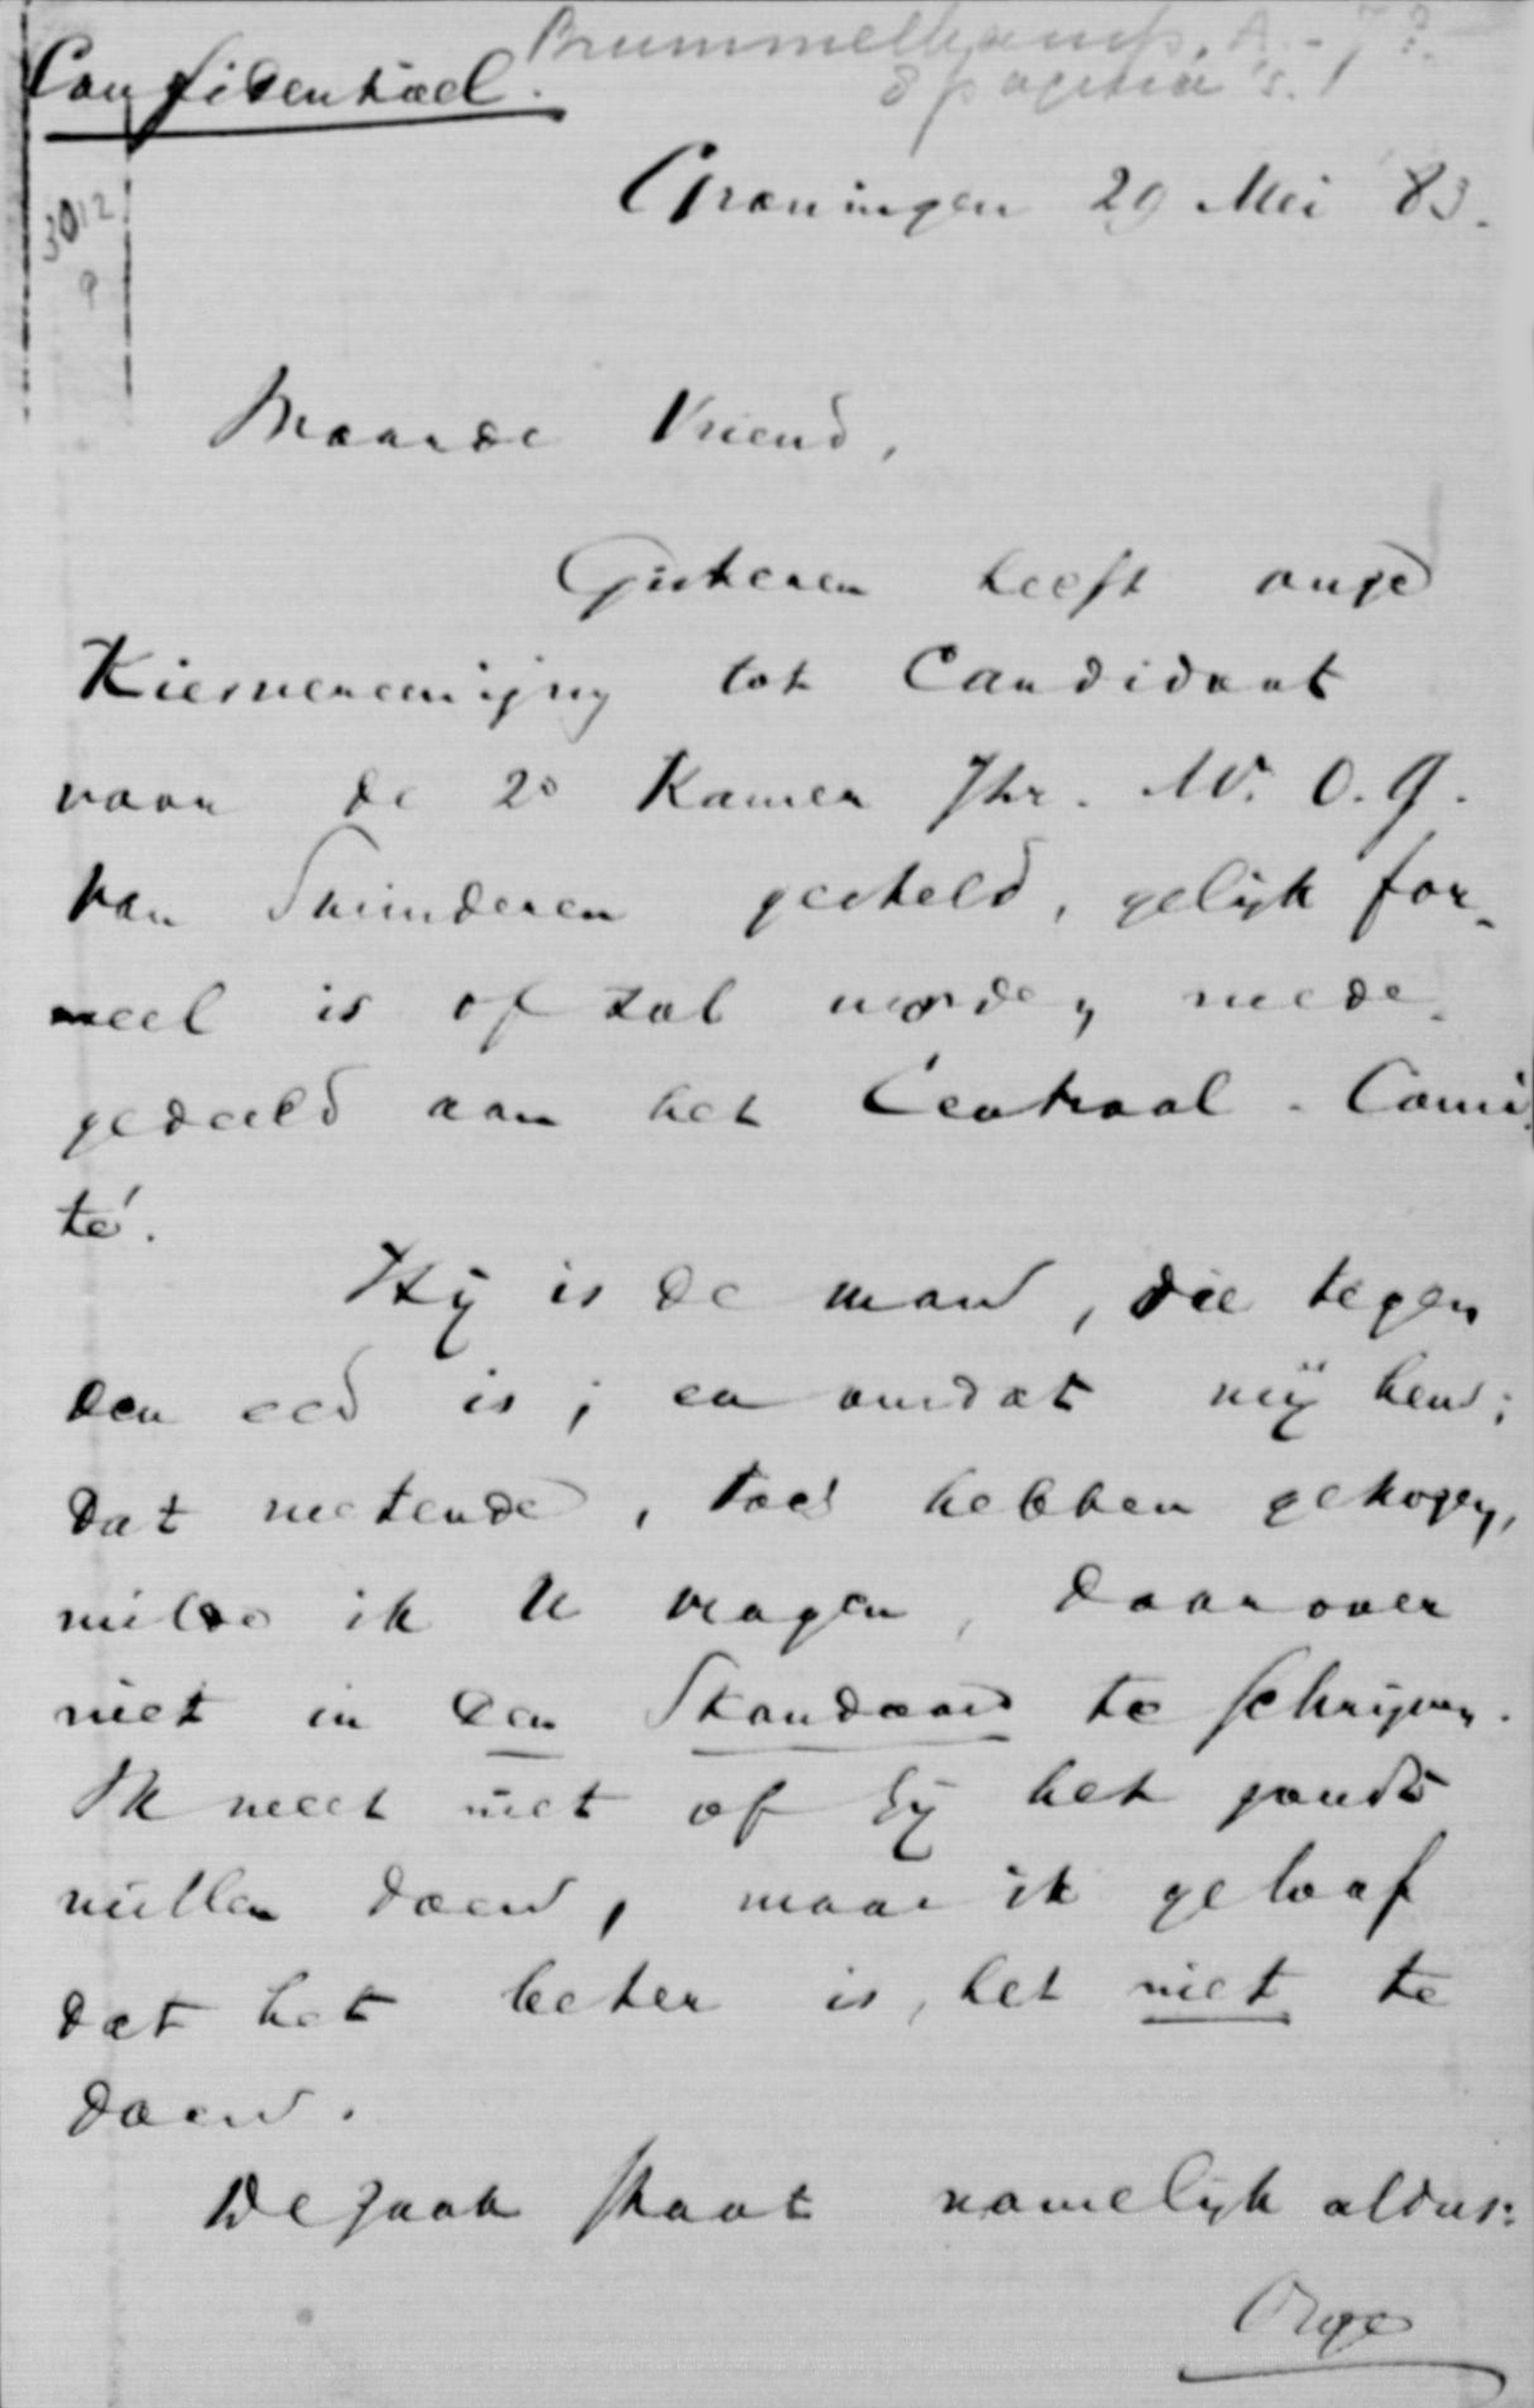 Brummelkamp, A. - J?.
8 pagina's.
Confidentieel.
Groningen 29 Mei '83.
3012
9
Waarde Vriend,
Gisteren heeft onze
Kiesvereeniging tot Candidaat
voor de 2e Kamer Jhr. Mr. O. Q.
van Swinderen gesteld, gelijk for-
meel is of zal worden mede-
gedeeld aan het Centraal-Comi-
té.
Hij is de man, die tegen
den eed is; en omdat wij hem,
dat wetende, toch hebben gekozen,
wilde ik U vragen, daarover
niet in den Standaard te schrijven.
Ik weet niet of gij het zoudt
willen doen, maar ik geloof
dat het beter is, het niet te
doen.
De zaak staat namelijk aldus:
Onze